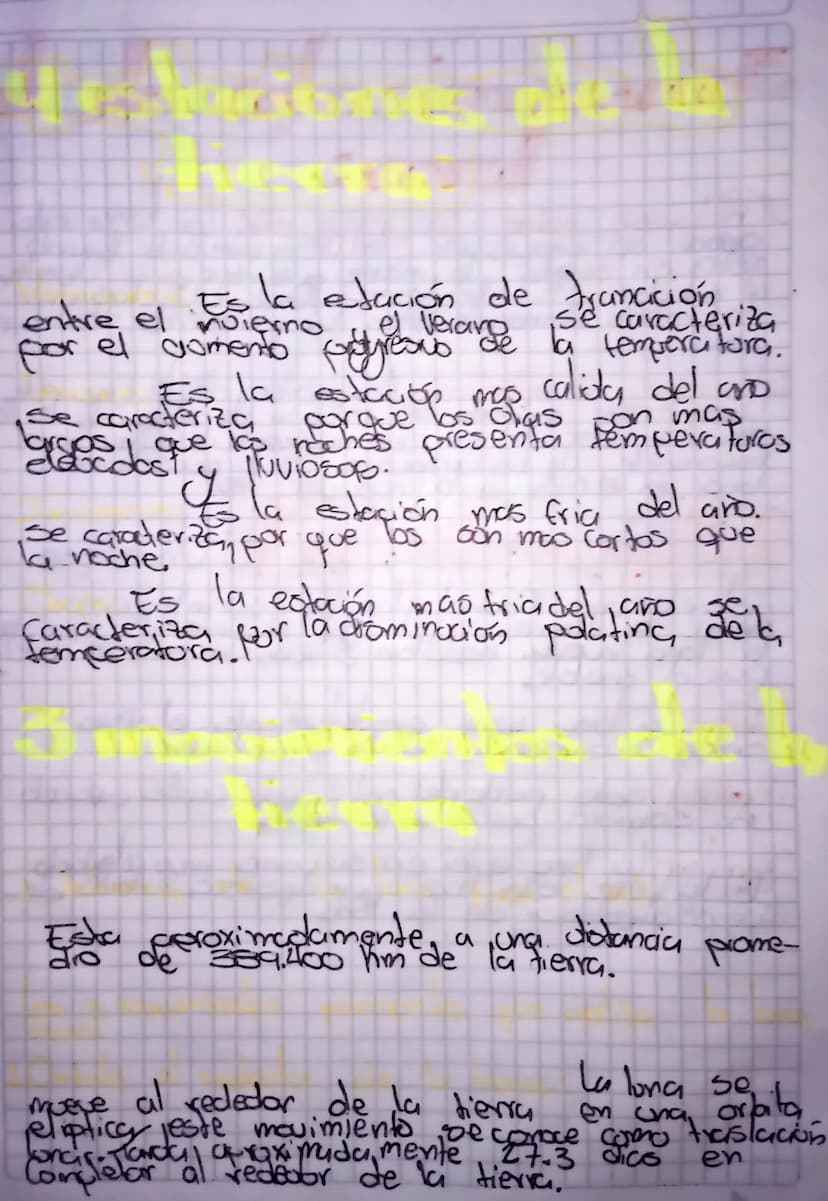 4 estaciones de la
tierra
Es la estación de trancición
entre el invierno y el verano se caracteriza
por el aomento de la temperatora.
Es la estación mas calida del año
se caracteriza porque los dias son mas
largos, que las noches presenta temperaturas
y lluviosos.
Es la estación mas fria del año.
se caracteriza, por que los son mas cortos que
la noche.
Es la estación mas fria del año se
caracteriza por la de la
temperatora.
3 movimientos de la
tierra
Esta aproximadamente, a una distancia prome-
dio de 389.400 km de la tierra.
La luna se
mueve al rededor de la tierra en una orbita
eliptica este movimiento se conoce como traslación
Tarda aproximadamente 27.3 dias en
completar al rededor de la tierra.